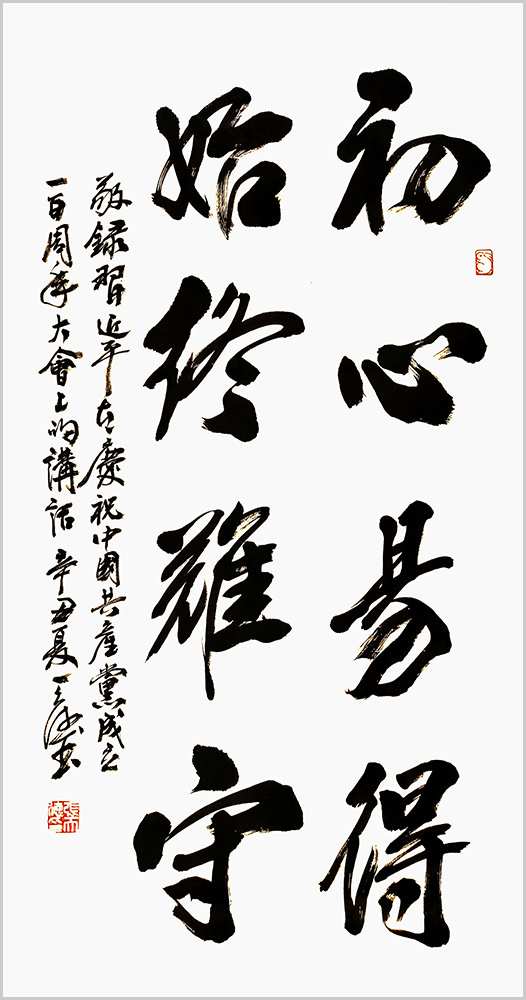 初心易得
始終難守
敬録習近平在慶祝中國共産黨成立
一百周年大會上的講話 辛丑夏